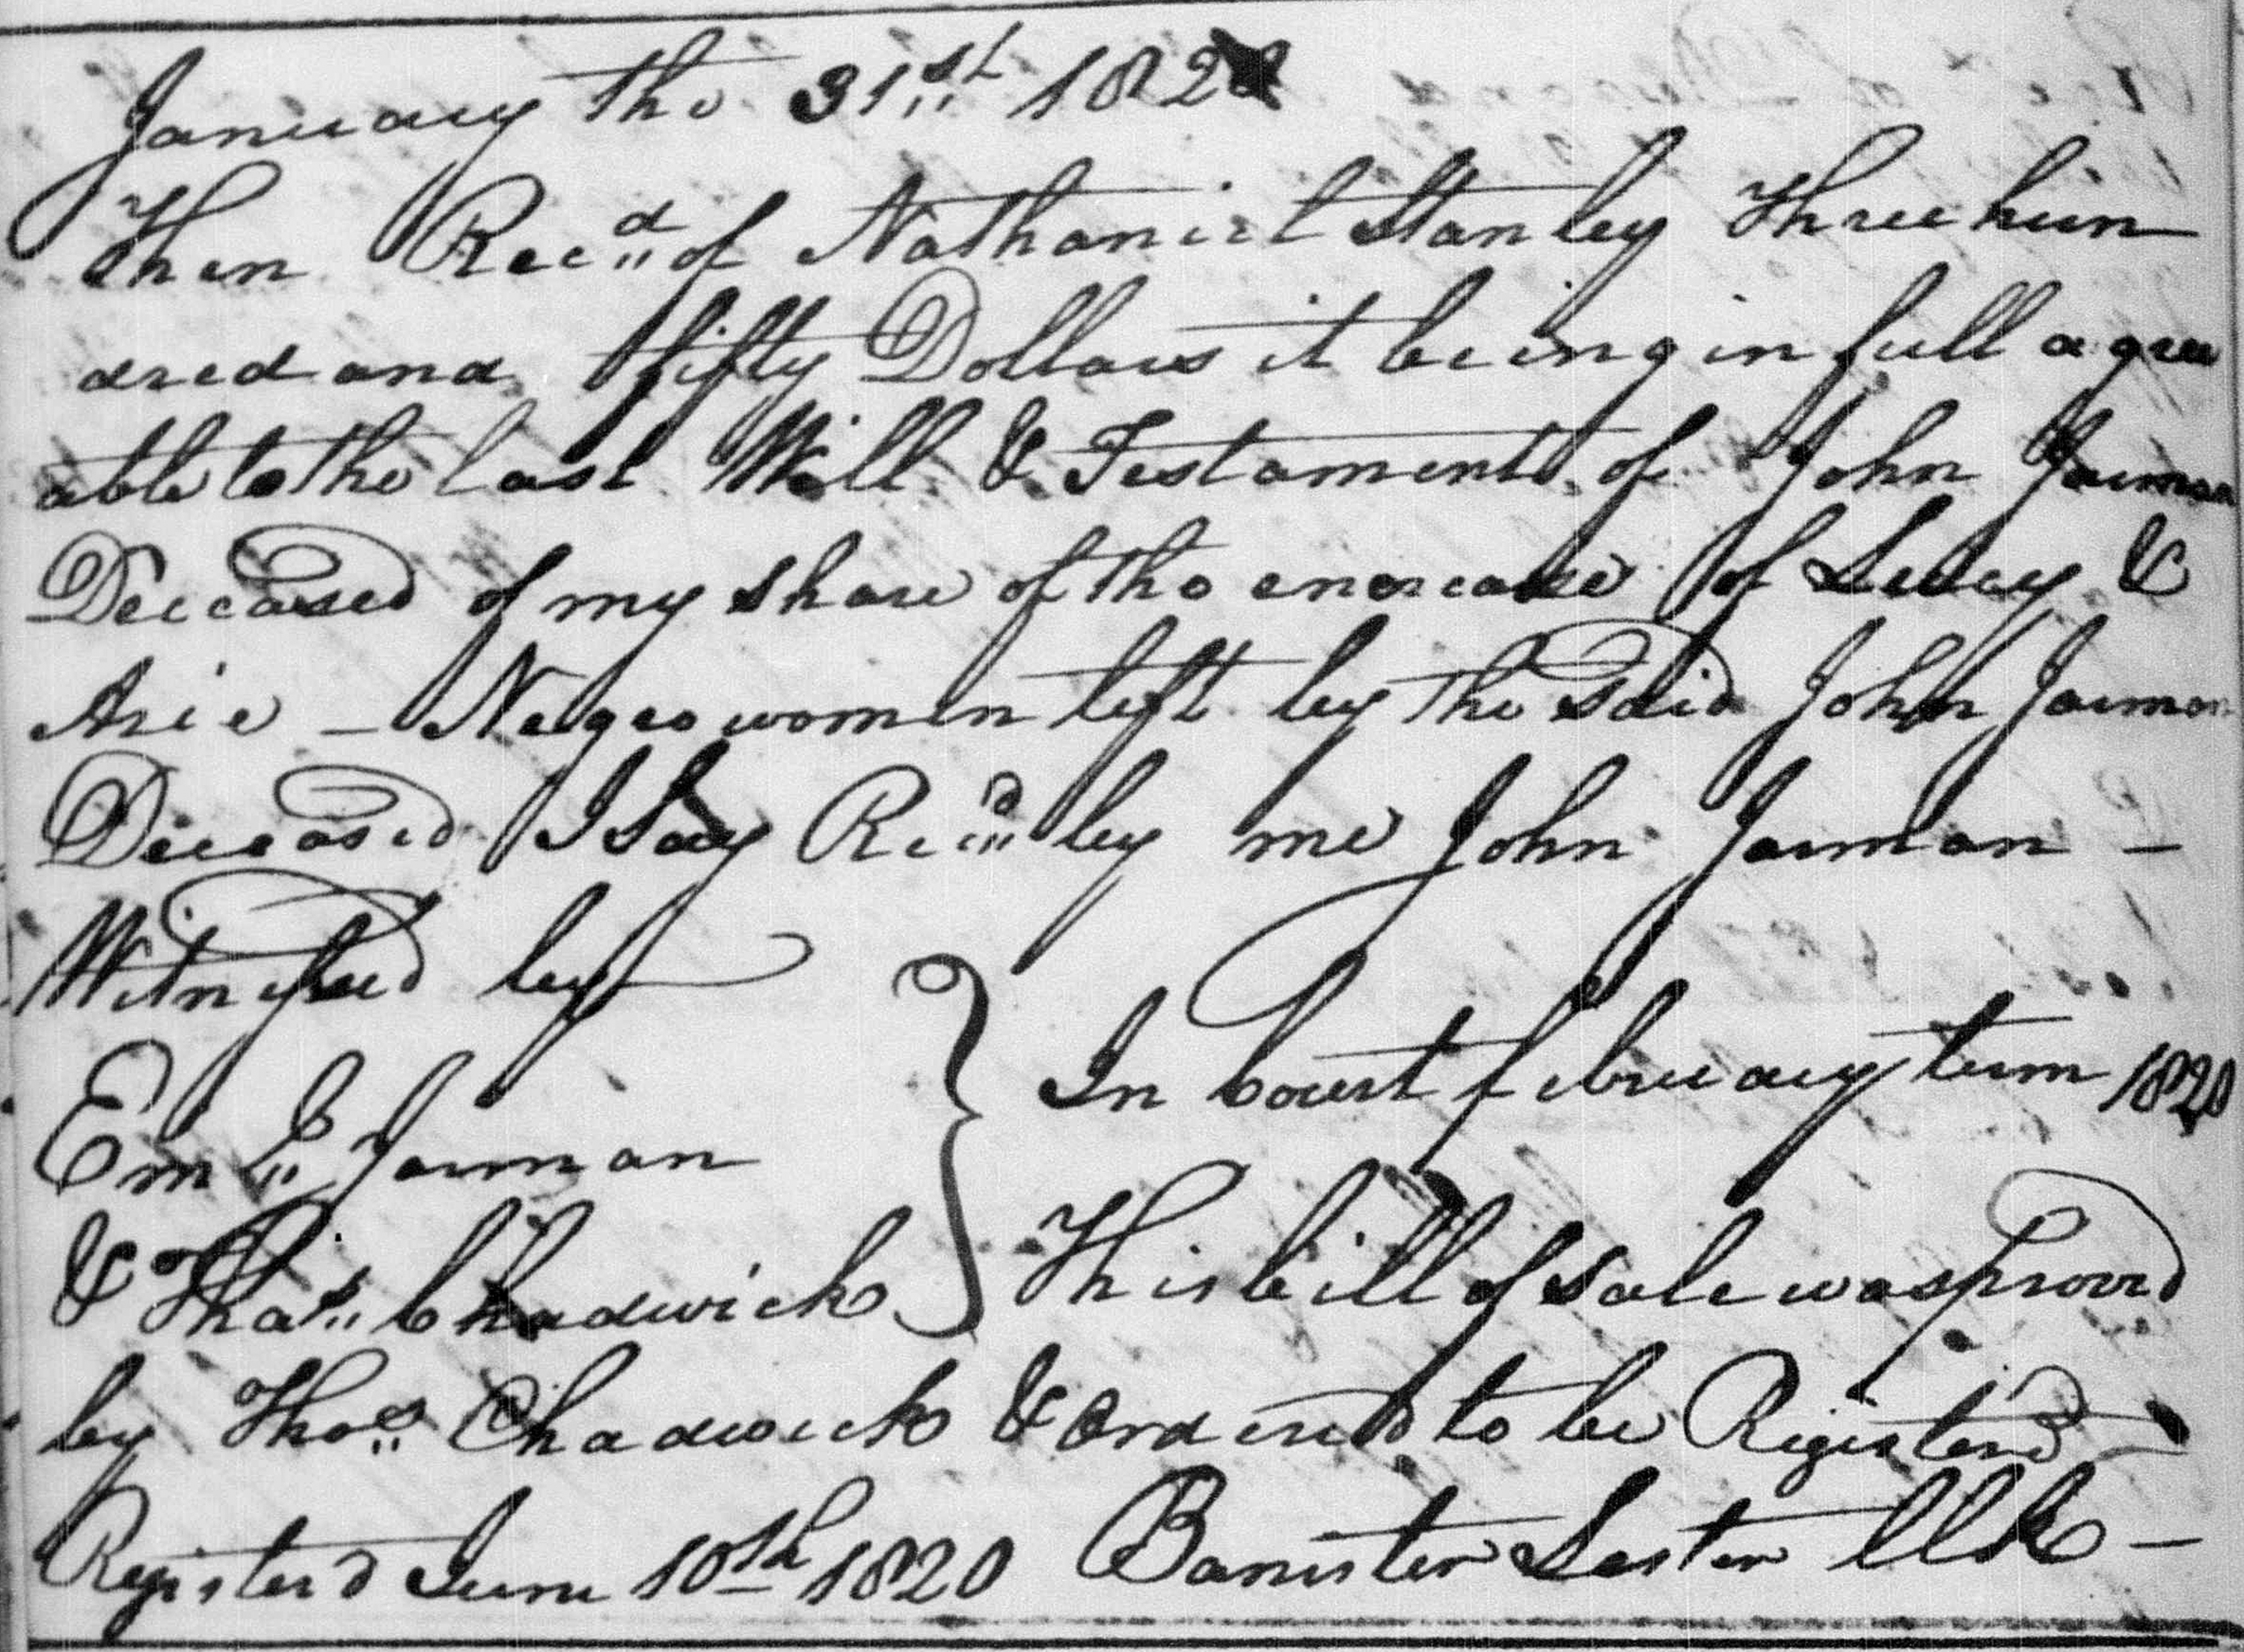 January the 31st 1820
Then Recd of Nathaniel Stanley Three hun
dred and fifty Dollars it being in full agree
able to the last Will & Testament of John Jarman
Deceased of my share of the encrease of Lucy &
Arie - Negro women left by the Said John Jarman
Deceased I Say Recd by me John Jarman -
Witnessed by
Em L Jarman
& Thos Chadwick
In Court february term 1820
This bill of sale was provd
by Thos Chadwick & ordered to be Registerd
Registerd June 10th 1820 Banister Lester Clk -